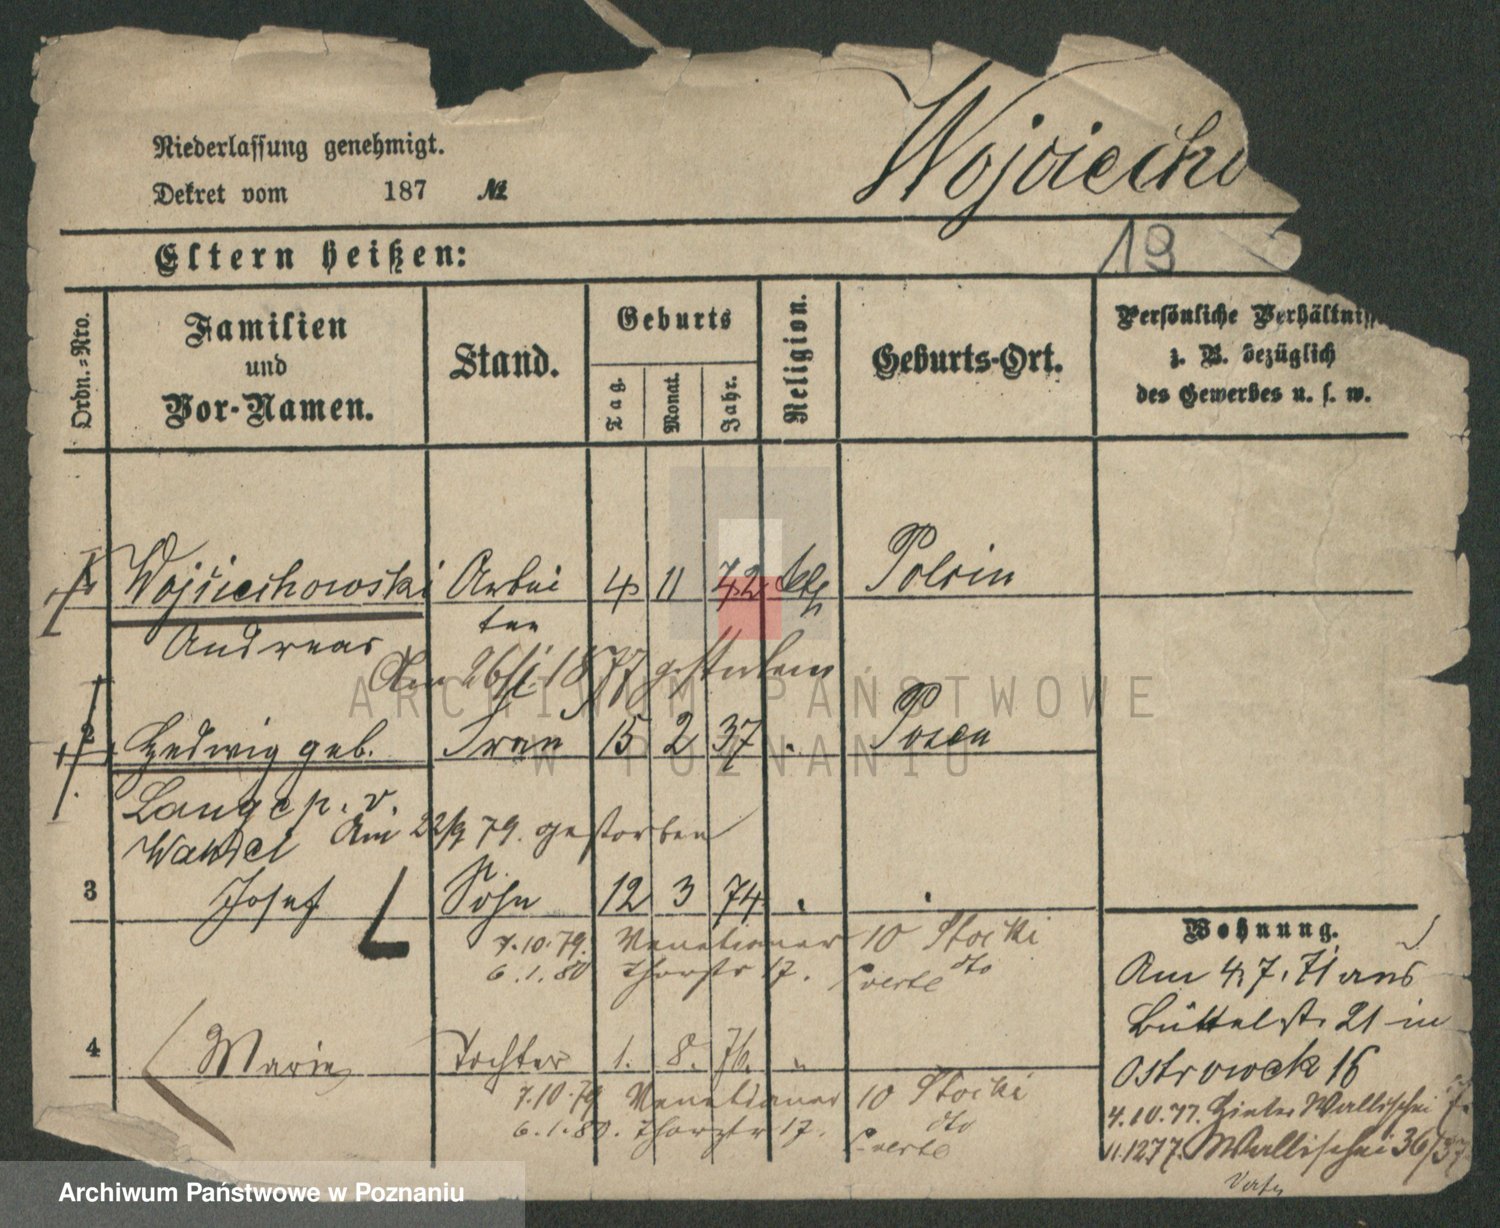 Niederlassung genehmigt.
Dekret vom 187 №
Wojciecho
Eltern heißen:
19
Ordn.-Nro.
Familien
und
Vor-Namen.
Stand.
Geburts
Tag.
Monat.
Jahr.
Religion.
Geburts-Ort.
Persönliche Verhältniss
z. B. bezüglich
des Gewerbes u. s. w.
1 Wojciechowski Arbei 4 11 42 kath Polrin
Andreas ter
Am 26/1 1877 gestorben
2 Hedwig geb. Frau 15 2 37 " Posen
Lange p. v.
Wandel Am 22/9 79. gestorben
3 Josef Sohn 12 3 74 " "
7.10.79. Venetianer 10 Stocki
6.1.80 Thorstr 17. dto
4 Marie Tochter 1. 8. 76. "
7.10.79 Venetianer 10 Stocki
6.1.80. Thorstr 17. dto
Wohnung.
Am 4.7.71 aus
Büttelst. 21 in
Ostrowek 16
4.10.77. Hinter Wallischei 7.
11.12 77. Wallischei 36/37
ARCHIWUM PAŃSTWOWE
W POZNANIU
Archiwum Państwowe w Poznaniu